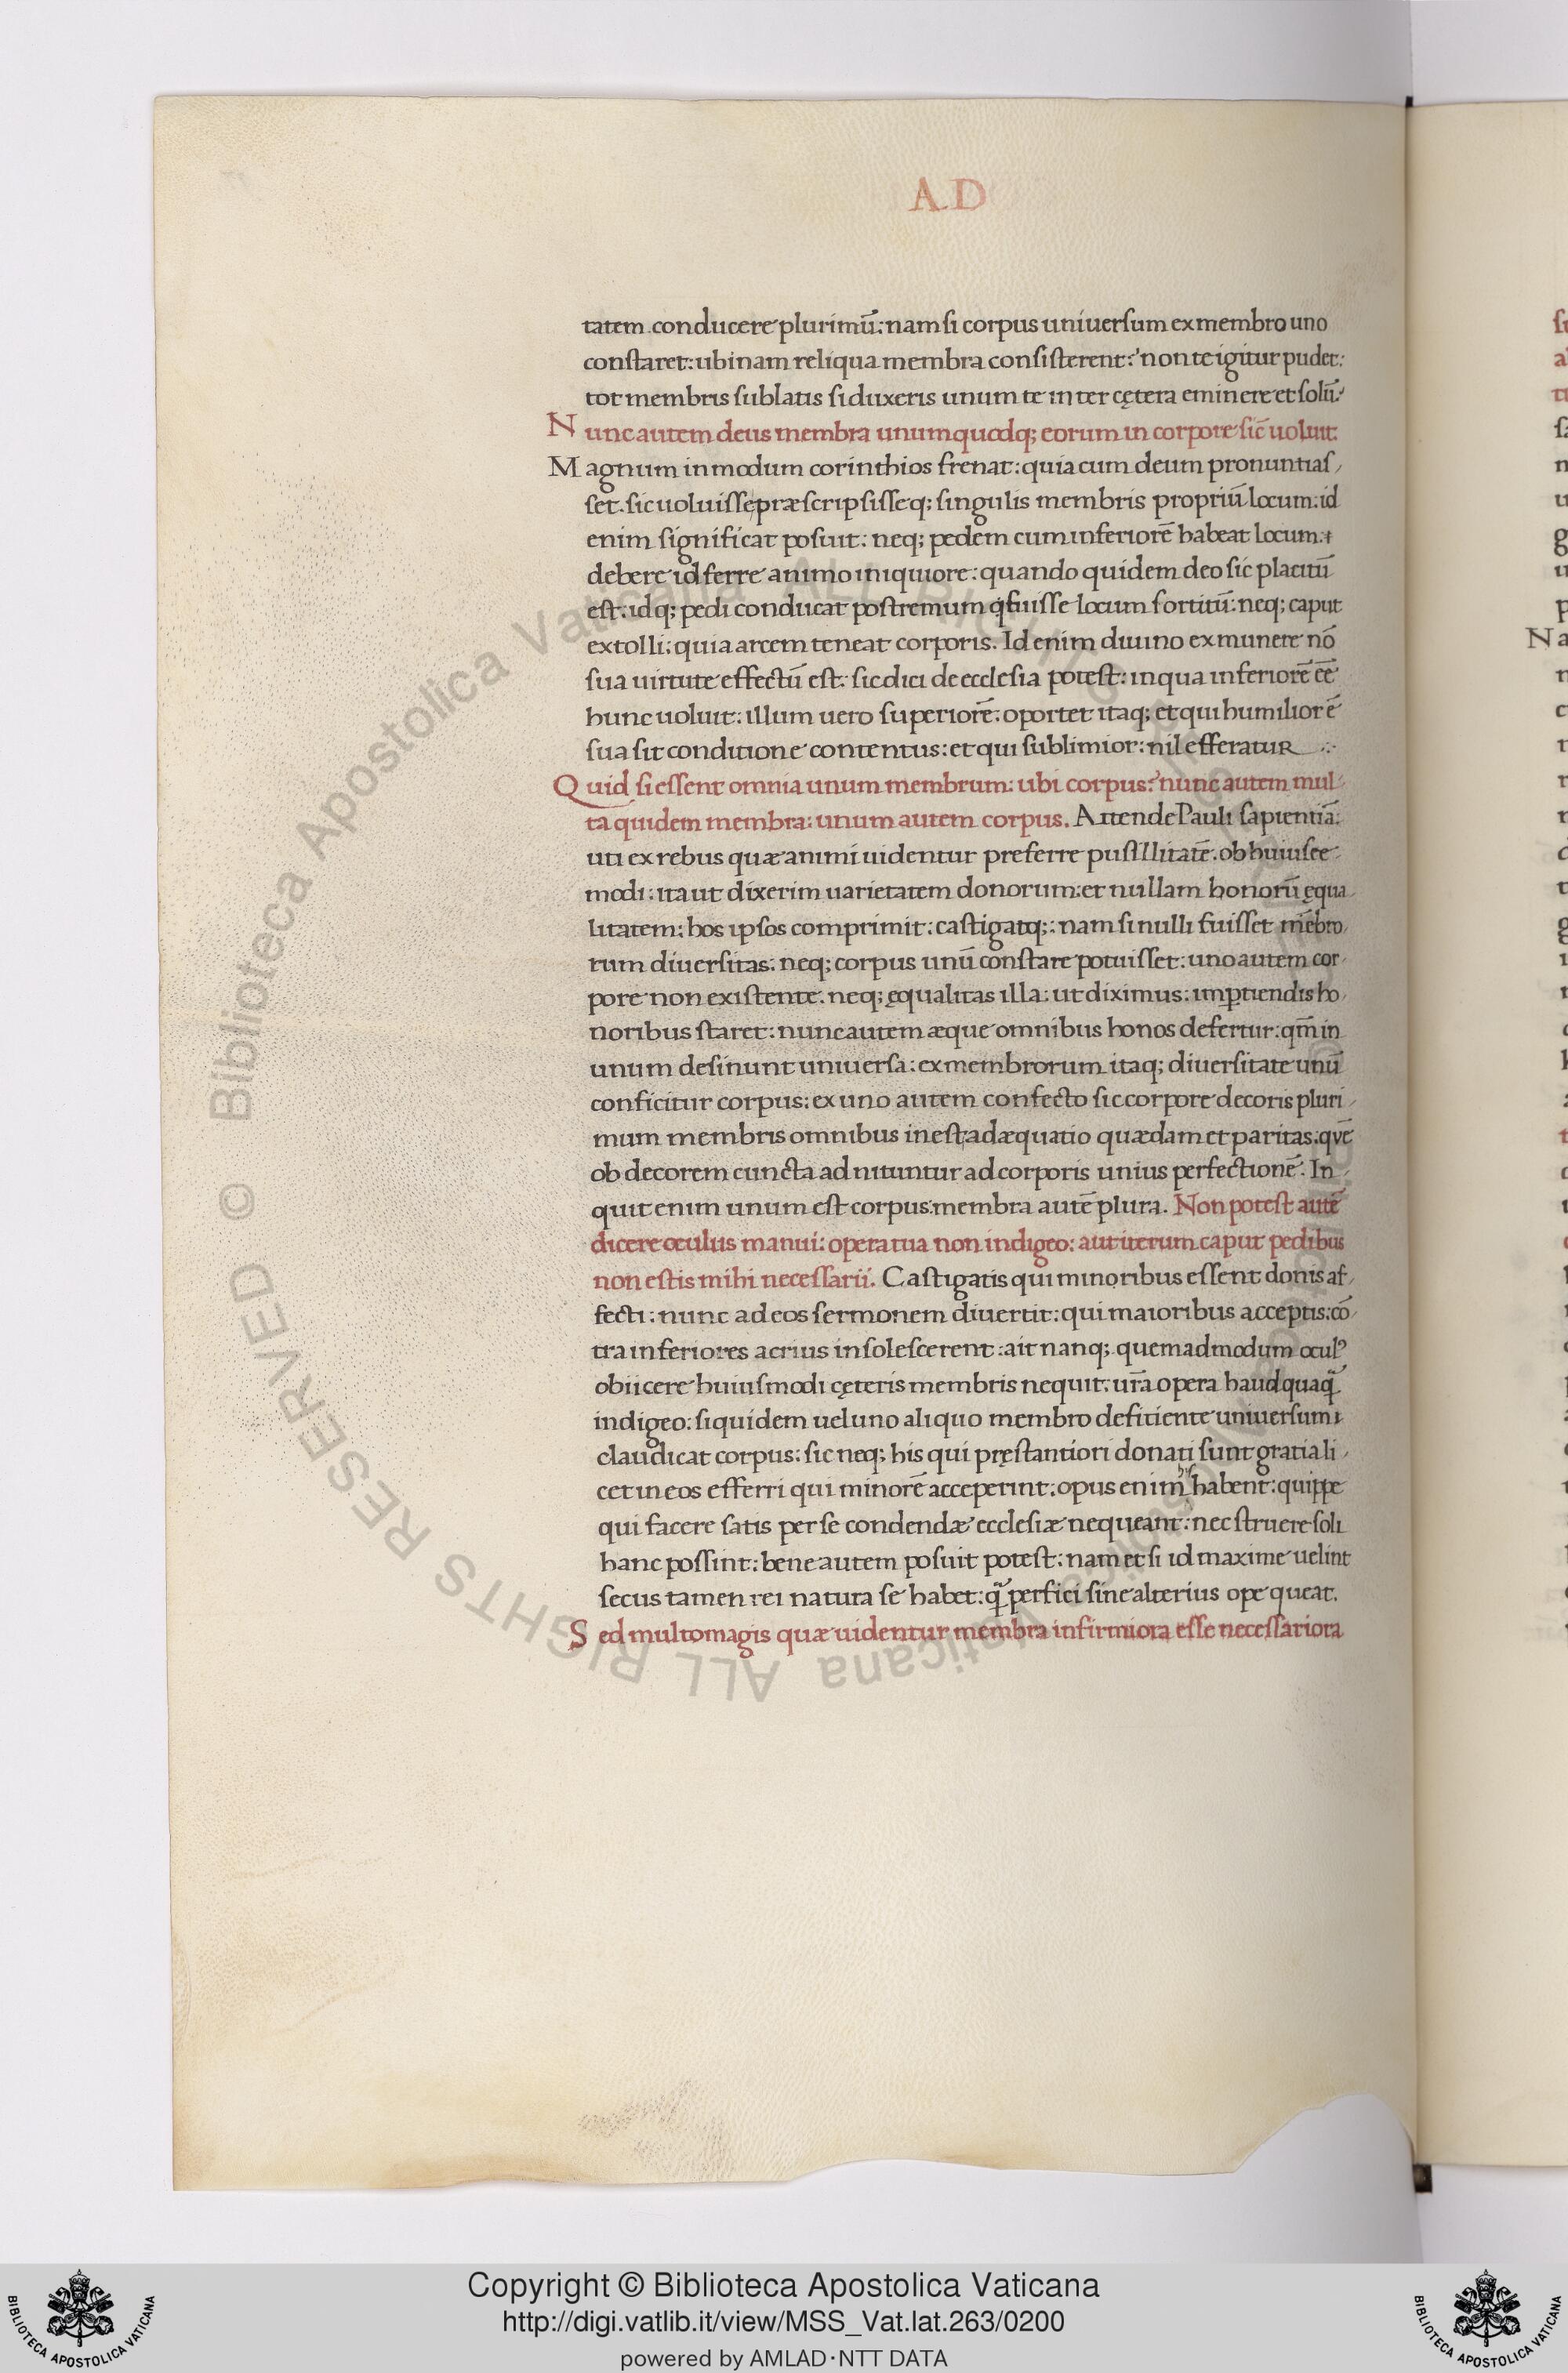 A.D
tatem conducere plurimū: nam si corpus uniuersum ex membro uno
constaret: ubinam reliqua membra consisterent? non te igitur pudet:
tot membris sublatis si duxeris unum te inter cętera eminere et solū?
Nunc autem deus membra unumquodq; eorum in corpore sic uoluit.
Magnum in modum corinthios frenat: quia cum deum pronuntias/
set. sic uoluisse præscripsisseq; singulis membris propriū locum: id
enim significat posuit: neq; pedem cum inferiorē habeat locum:
debere id ferre animo iniquiore: quando quidem deo sic placitū
est: idq; pedi conducat postremum fuisse locum sortitū: neq; caput
extolli: quia arcem teneat corporis. Id enim diuino ex munere nō
sua uirtute effectū est: sic dici de ecclesia potest: in qua inferiorē eē
hunc uoluit: illum uero superiorē: oportet itaq; et qui humilior ē
sua sit conditione contentus: et qui sublimior: nil efferatur
Quid si essent omnia unum membrum: ubi corpus? nunc autem mul/
ta quidem membra: unum autem corpus. Attende Pauli sapientiā:
uti ex rebus quæ animi uidentur preferre pusillitatē. ob huiusce
modi: ita ut dixerim uarietatem donorum: et nullam honorū ęqua
litatem: hos ipsos comprimit: castigatq;: nam si nulli fuisset mēbro/
rum diuersitas: neq; corpus unū constare potuisset: uno autem cor/
pore non existente: neq; ęqualitas illa: ut diximus: imꝑtiendis ho/
noribus staret: nunc autem æque omnibus honos defertur: qm̄ in
unum desinunt uniuersa: ex membrorum itaq; diuersitate unū
conficitur corpus: ex uno autem confecto sic corpore decoris pluri/
mum membris omnibus inest adæquatio quædam et paritas: qvē
ob decorem cuncta adnituntur ad corporis unius perfectionē. In/
quit enim unum est corpus: membra autē plura. Non potest autē
dicere oculus manui: opera tua non indigeo: aut iterum caput pedibus
non estis mihi necessarii. Castigatis qui minoribus essent donis af/
fecti: nunc ad eos sermonem diuertit: qui maioribus acceptis: cō/
tra inferiores acrius insolescerent: ait nanq;. quemadmodum oculꝰ
obiicere huiusmodi cęteris membris nequit: ur̄a opera haudquaq̄
indigeo: siquidem uel uno aliquo membro defitiente uniuersum
claudicat corpus: sic neq; his qui pręstantiori donati sunt gratia li/
cet in eos efferri qui minorē acceperint: opus enim his habent: quippe
qui facere satis per se condendæ ecclesiæ nequeant: nec struere soli
hanc possint: bene autem posuit potest: nam et si id maxime uelint
secus tamen rei natura se habet: q̄ perfici sine alterius ope queat.
Sed multo magis quæ uidentur membra infirmiora esse necessariora
© Biblioteca Apostolica Vaticana ALL RIGHTS RESERVED
Copyright © Biblioteca Apostolica Vaticana
http://digi.vatlib.it/view/MSS_Vat.lat.263/0200
powered by AMLAD·NTT DATA
BIBLIOTECA APOSTOLICA VATICANA
BIBLIOTECA APOSTOLICA VATICANA